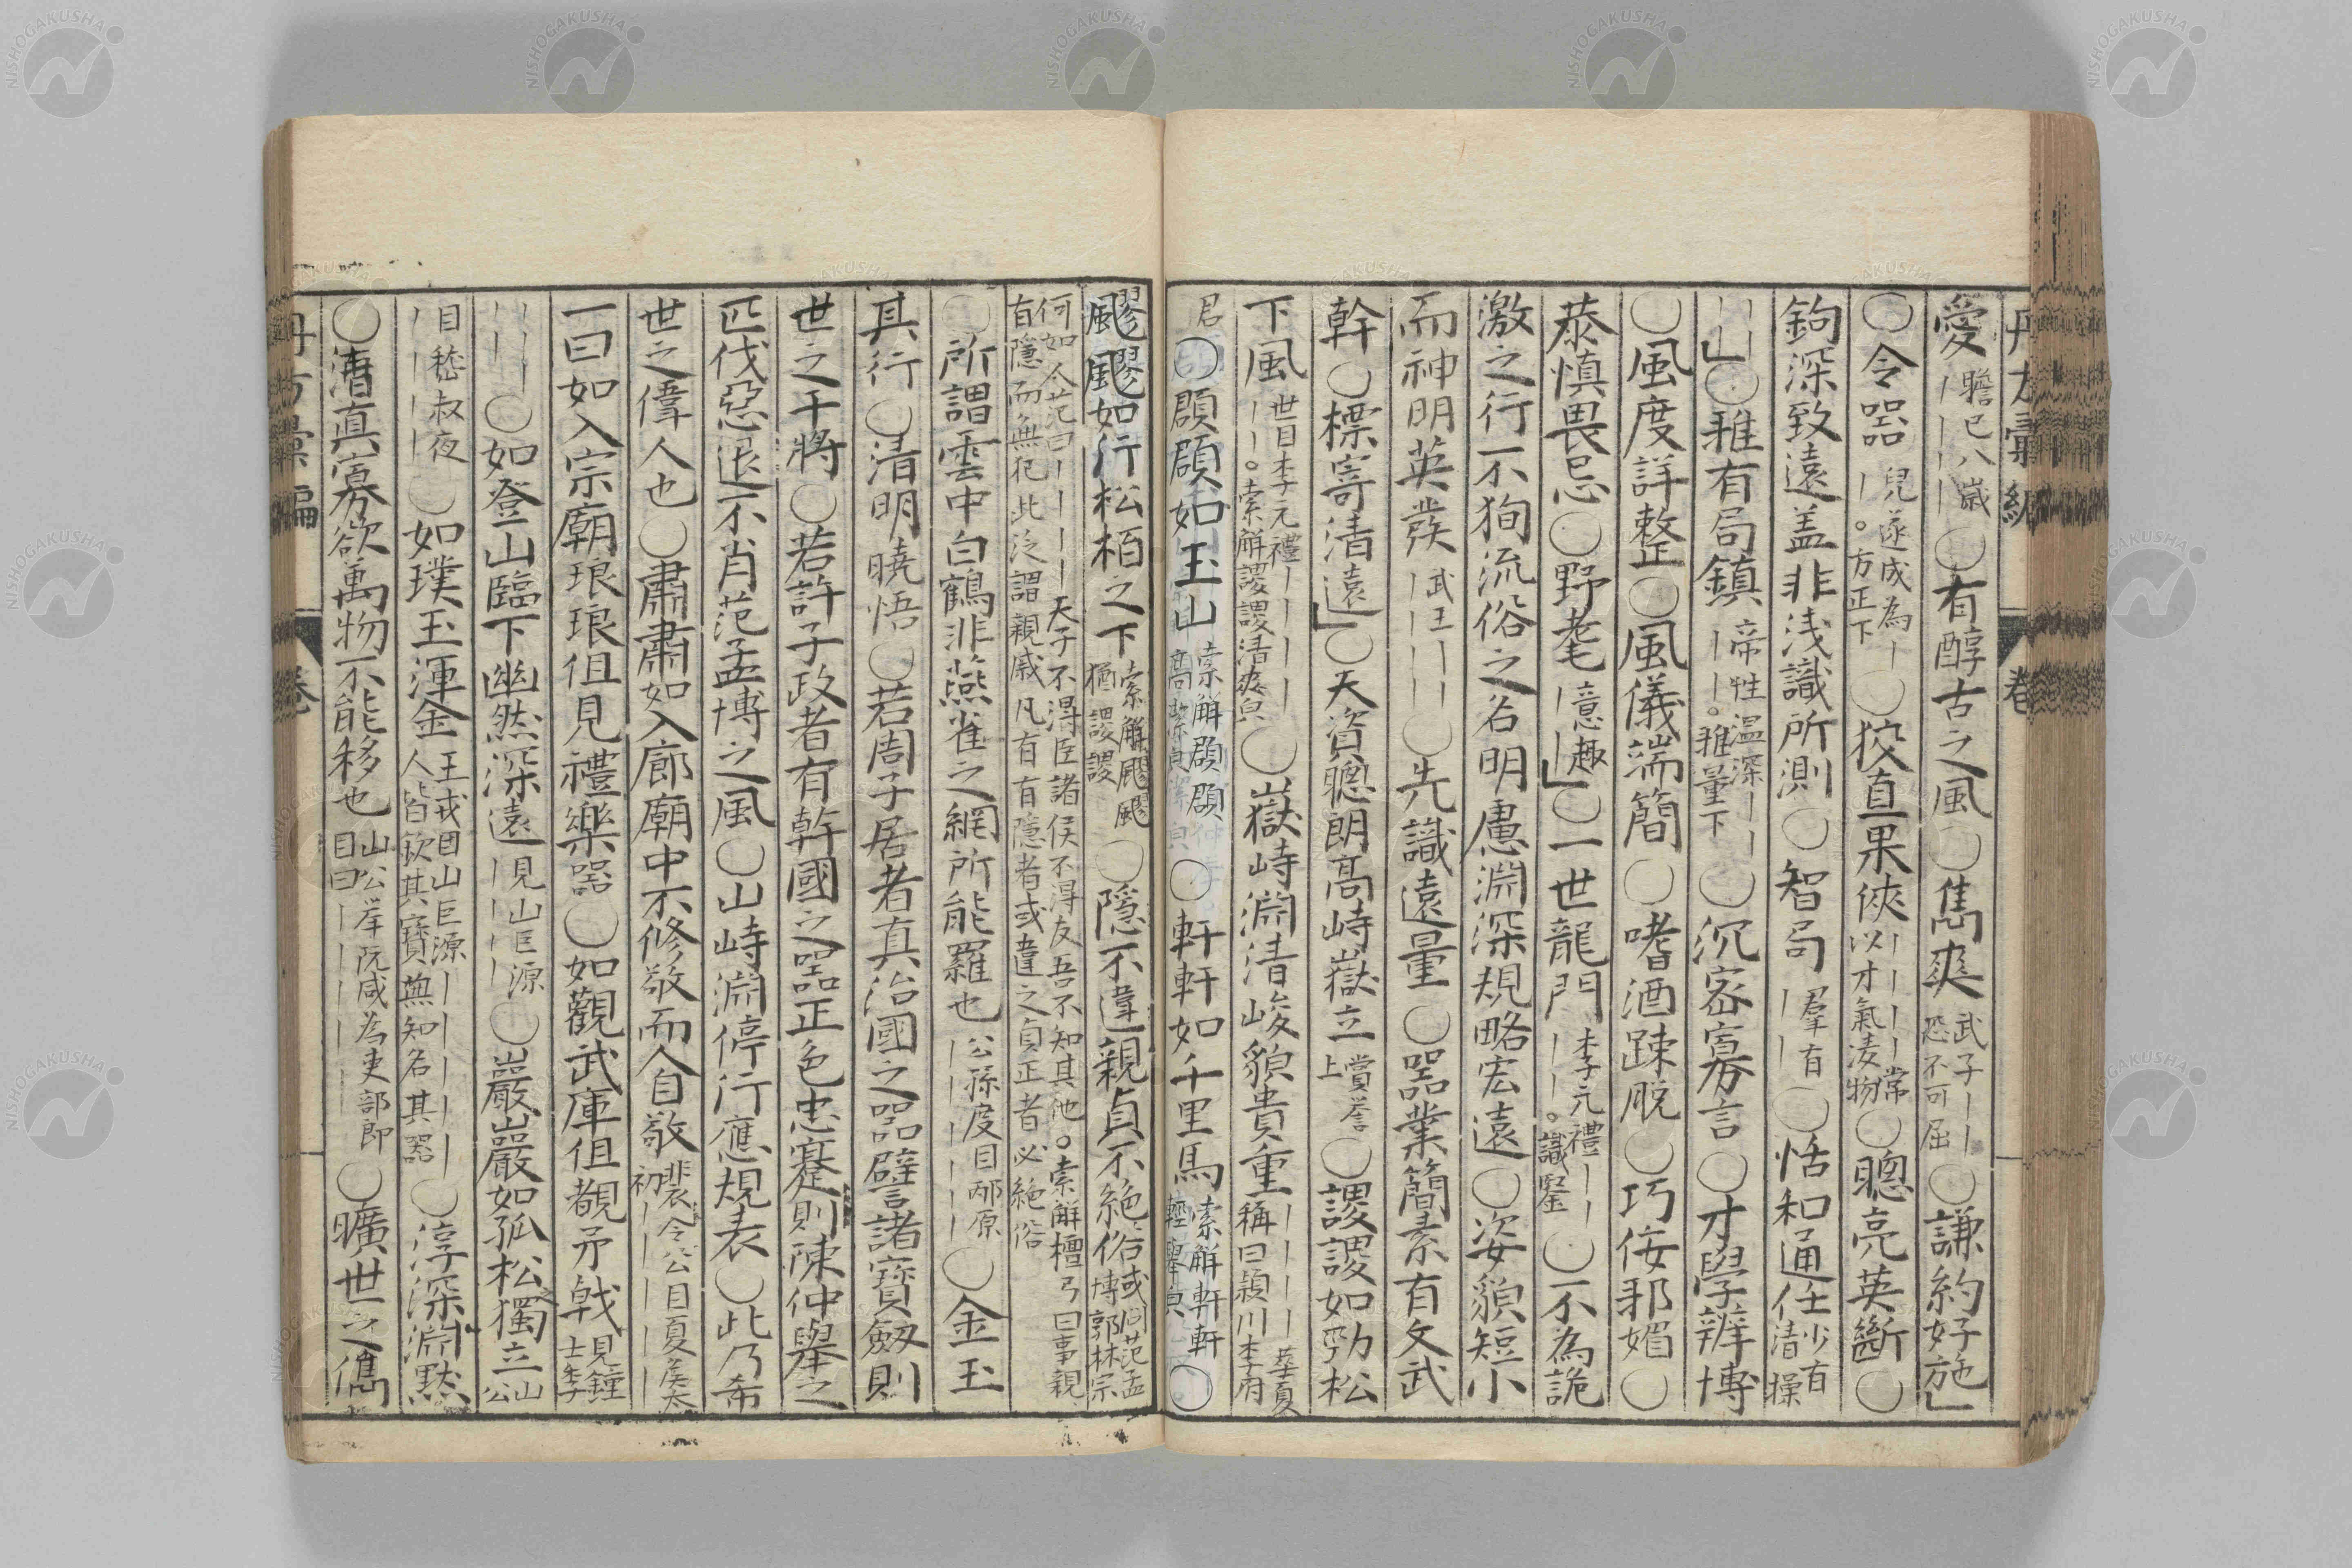 愛瞻已八歳｜｜｜｜｜○有醇古之風○雋爽武子｜｜恐不可屈○謙約好施」
○令器兒遂成為｜｜。方正下○狡直果俠｜｜｜｜常以才氣凌物○聰亮英斷○
鉤深致遠盖非浅識所測○智局羣有｜｜○恬和通任少有清操
｜｜山」○雅有局鎮帝性温深｜｜｜｜。雅量下○沉密寡言○才學辨博
○風度詳整○風儀端簡○嗜酒踈脱○巧佞邪媚○
恭慎畏忌○野耄意趣｜｜」○一世龍門李元禮｜｜｜｜。識鑒○不為詭
激之行不狥流俗之名明慮淵深規略宏遠○姿貌短小
而神明英發武王｜｜｜｜｜○先識遠量○器業簡素有文武
幹○標寄清遠」○天資聰朗高峙嶽立賞誉上○謖謖如勁松
下風世目李元禮｜｜｜｜｜｜。索解謖謖清爽皃○嶽峙淵清峻貌貴重｜｜｜｜｜華夏稱曰潁川李府
君○頵頵如玉山索解頵頵高○軒軒如千里馬索解軒軒輕舉皃○
飂飂如行松栢之下索解飂飂猶謖謖○隱不違親貞不絶俗或問范孟博郭林宗
何如人范曰｜｜｜｜｜天子不得臣諸侯不得友吾不知其他。索解檀弓曰事親
有隱而無犯此泛謂親戚凡有有隱者或違之貞正者必絶俗
○所謂雲中白鶴非燕雀之網所能羅也公孫度目邴原｜｜｜｜｜○金玉
其行○清明曉悟○若周子居者真治國之器譬諸寶劔則
世之干將○若許子政者有幹國之器正色忠蹇則陳仲舉之
匹伐惡退不肖范孟博之風○山峙淵停行應規表○此乃希
世之偉人也○肅肅如入廊廟中不修敬而人自敬裴令公目夏侯太初｜｜｜｜｜
一曰如入宗廟琅琅但見禮樂器○如觀武庫但覩矛戟見鐘士季
｜｜｜｜｜○如登山臨下幽然深遠見山巨源｜｜｜｜｜○巖巖如孤松獨立山公
目嵇叔夜｜｜｜｜｜○如璞玉渾金王戎目山巨源｜｜｜｜｜人皆欽其寶無知名其器○淳深淵黙
○清真寡欲萬物不能移也山公举阮咸為吏部郎目曰｜｜｜｜｜○曠世之儁